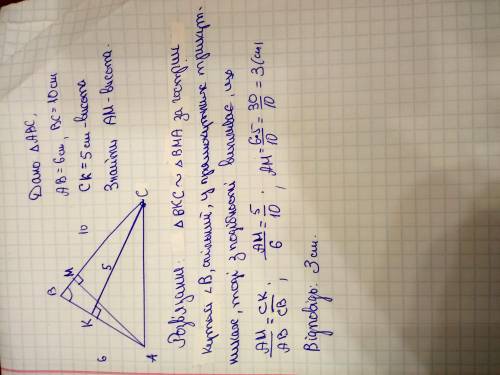 Дано △ABC,
AB = 6см, BC = 10см
CK = 5см - висота
Знайти AM - висота.
B
M
10
K
5
6
A
C
Розвʼязання: △BKC ~ △BMA за гострим
кутом ∠B, спільний, у прямокутних трикут-
никах, тоді з подібності випливає, що
AM/AB = CK/CB, AM/6 = 5/10, AM = 6·5/10 = 30/10 = 3 (см)
Відповідь: 3 см.